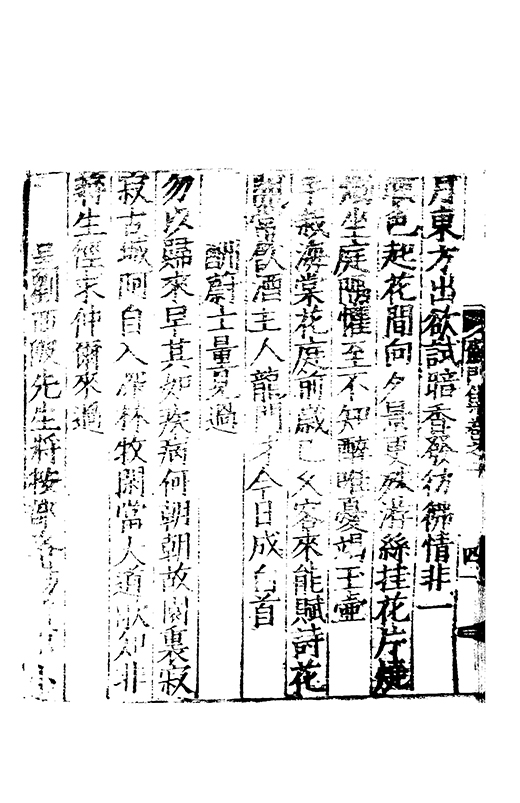 月東方出欲試暗香發彷彿情非一
色起花間向夕景更殊游絲挂花片燒
坐庭隅懽至不知醉唯憂竭玉壺
子栽海棠花庭前歲已久客來能賦詩花
開唯飲酒主人龍門才今日成白首
酬蔚士量見過
勿以歸來早其如疾病何朝朝故園裏寂
寂古城阿自入深林牧閑當人道歌知非
蔣生徑求仲爾來過
呈劉西陂先生將按
集卷之
四